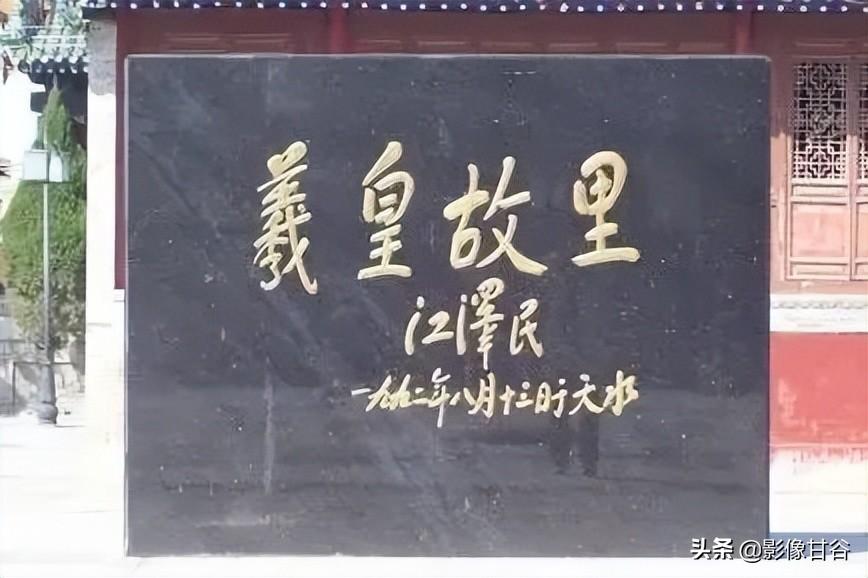 羲皇故里
江澤民
一九九二年八月十三日于天水
头条 @影像甘谷